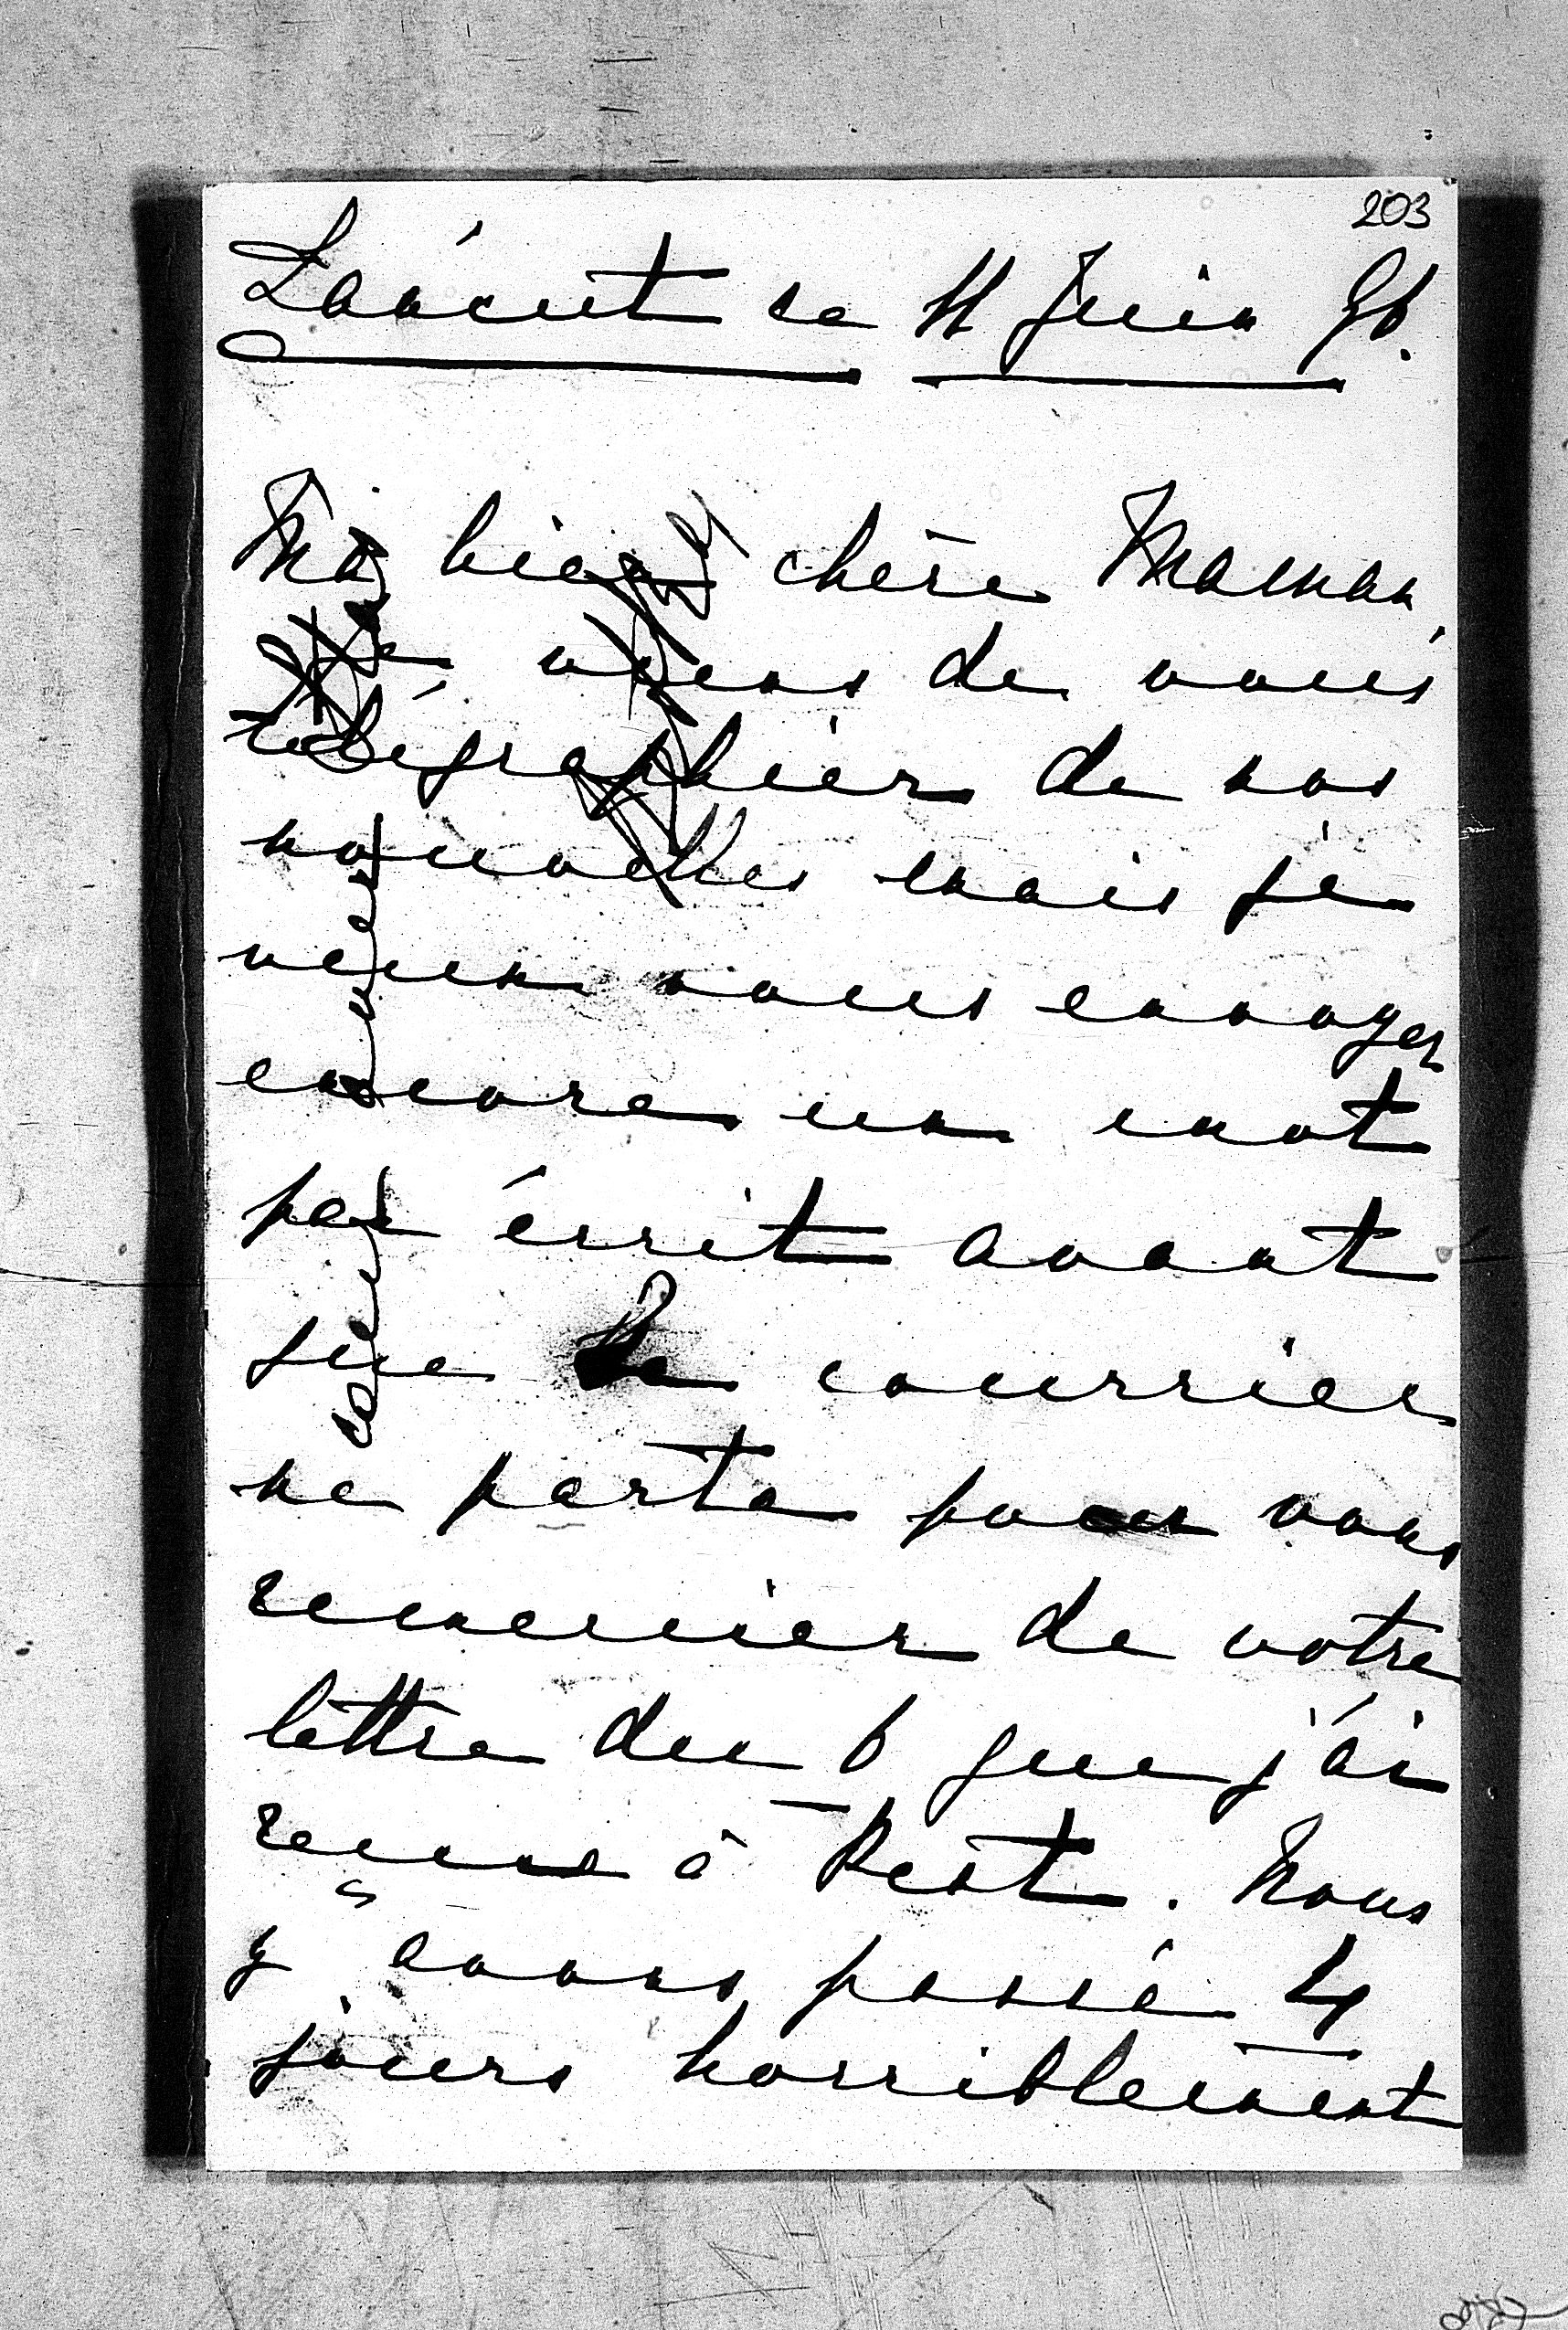 203
Łańcut ce 11 Juin 96.
Ma bien chère Maman,
Je viens de vous
télégraphier de nos
nouvelles mais je
veux vous envoyer
encore un mot
par écrit avant
que le courrier
ne parte pour vous
remercier de votre
lettre du 6 que j'ai
reçue à Pest. Nous
y avons passé 4
jours horriblement